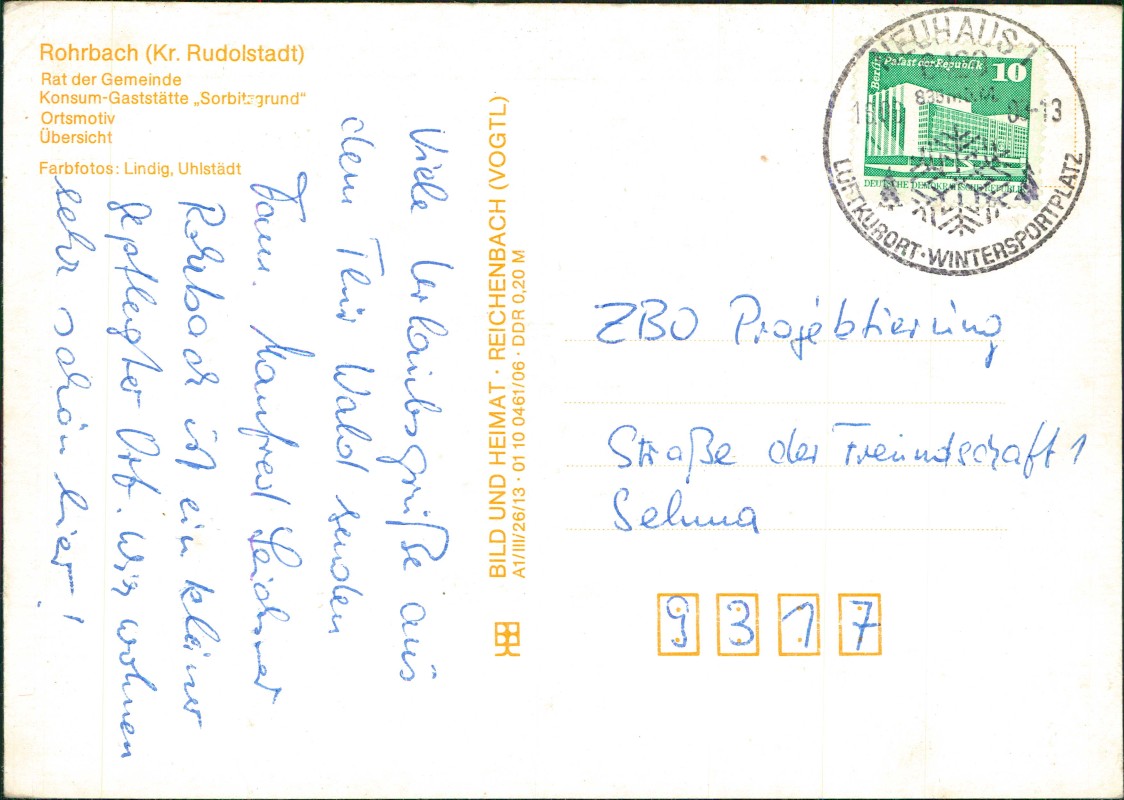 Rohrbach (Kr. Rudolstadt)
Rat der Gemeinde
Konsum-Gaststätte „Sorbitzgrund"
Ortsmotiv
Übersicht
Farbfotos: Lindig, Uhlstädt
Viele Urlaubsgrüße aus
dem Thür Wald senden
Fam. Manfred Leichsner
Rohrbach ist ein kleiner
gepflegter Ort. Wir wohnen
sehr schön hier!
BILD UND HEIMAT · REICHENBACH (VOGTL)
A1/III/26/13 · 01 10 0461/06 · DDR 0,20 M
NEUHAUS 1
835 m ü. M.
LUFTKURORT · WINTERSPORTPLATZ
Berlin, Palast der Republik 10
DEUTSCHE DEMOKRATISCHE REPUBLIK
ZBO Projektierung
Straße der Freundschaft 1
Sehma
9317